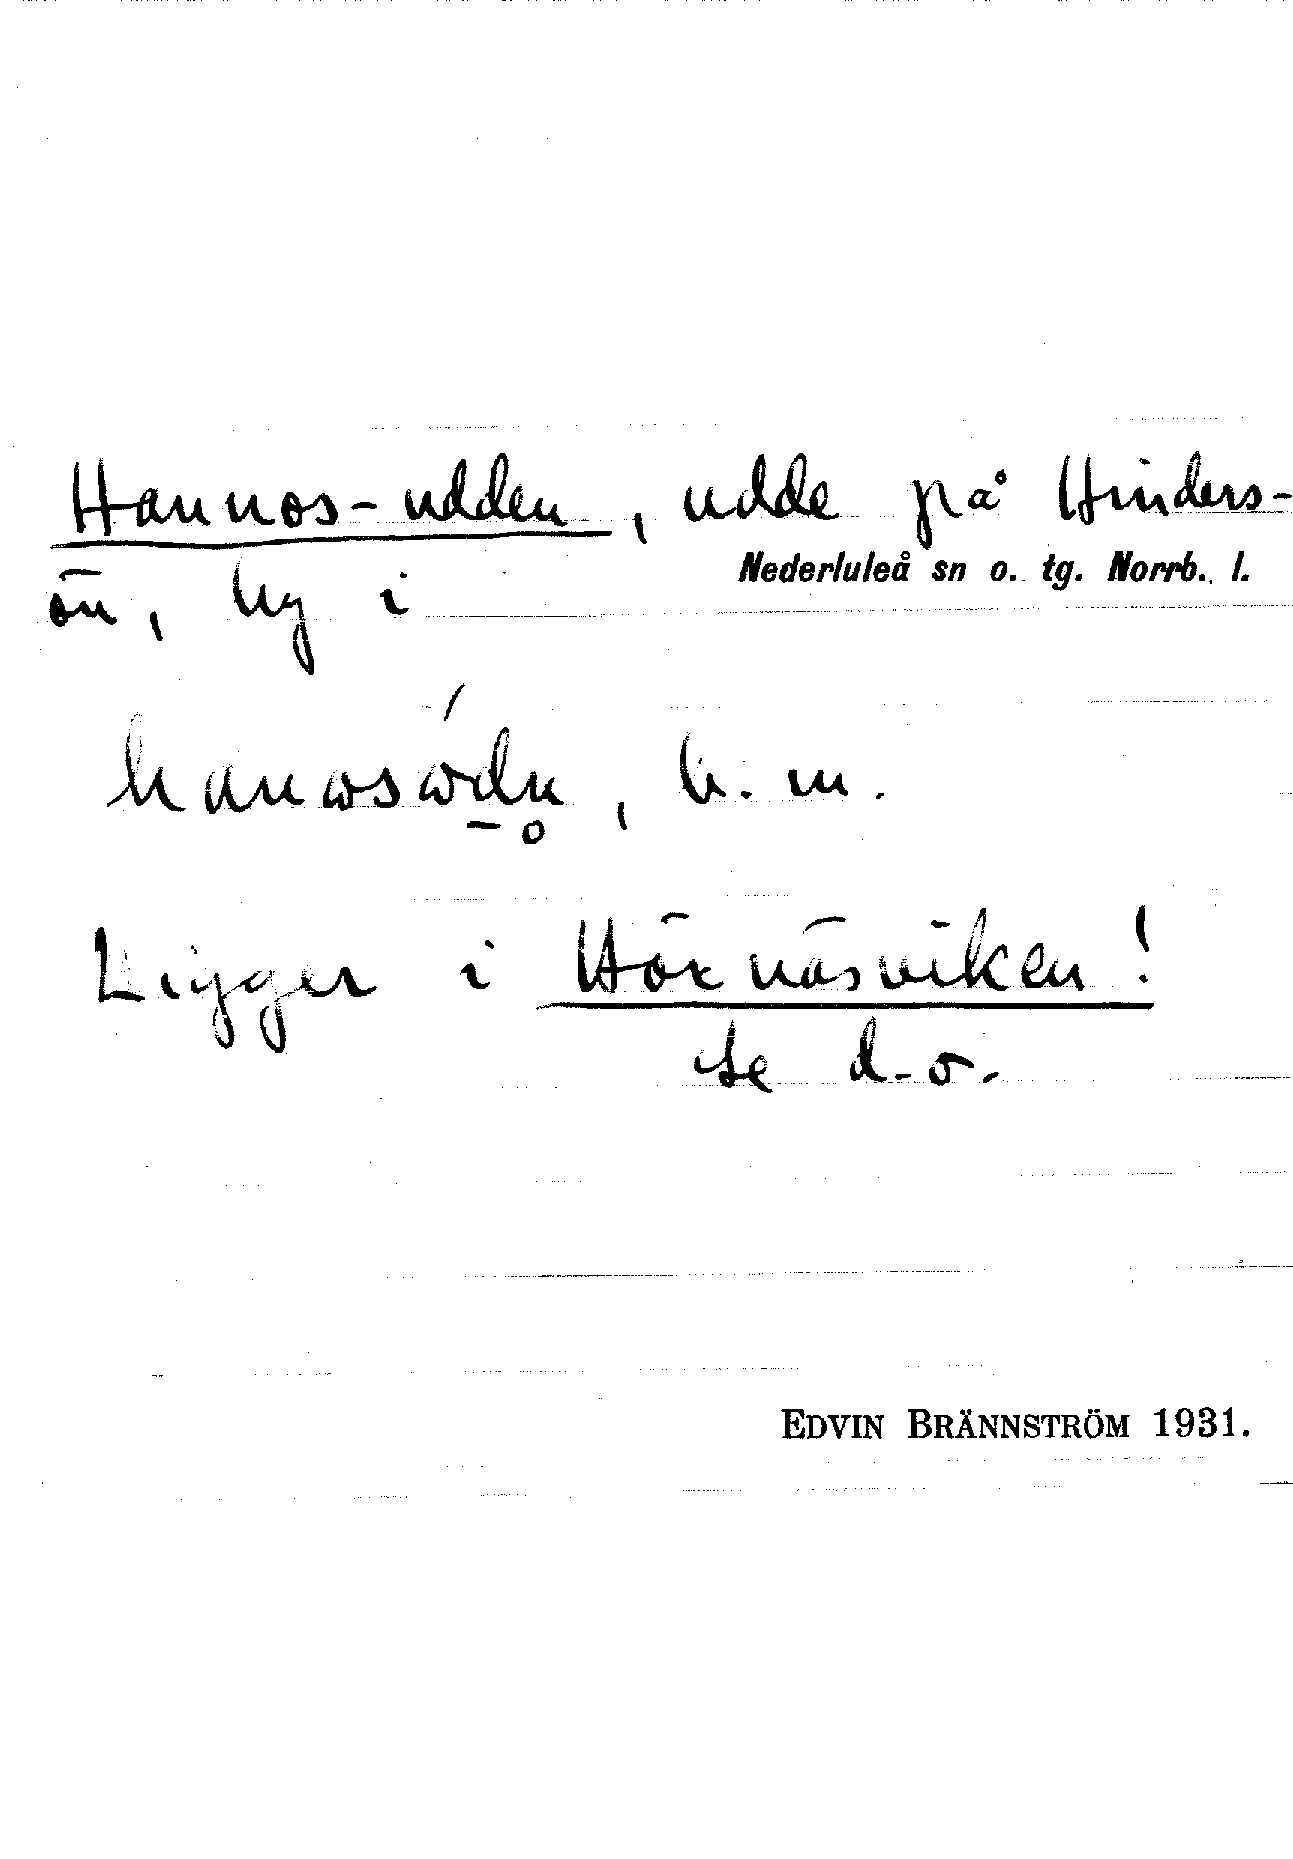 Hannos-udden, udde på Hinders-
Nederluleå sn o. tg. Norrb. l.
ön, by i
Ligger i Hörnäsviken!
se d.o.
EDVIN BRÄNNSTRÖM 1931.